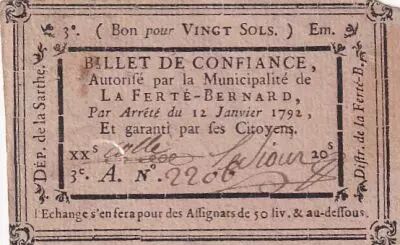 3ᵉ. ( Bon pour VINGT SOLS. ) Em.
DÉP. de la Sarthe.
BILLET DE CONFIANCE,
Autorisé par la Municipalité de
LA FERTÉ-BERNARD,
Par Arrêté du 12 Janvier 1792,
Et garanti par ſes Citoyens.
XXˢ 20ˢ
3ᵉ. A. Nº. 2206
Diſtr. de la Ferté-B.
L'Echange s'en fera pour des Aſſignats de 50 liv. & au-deſſous.